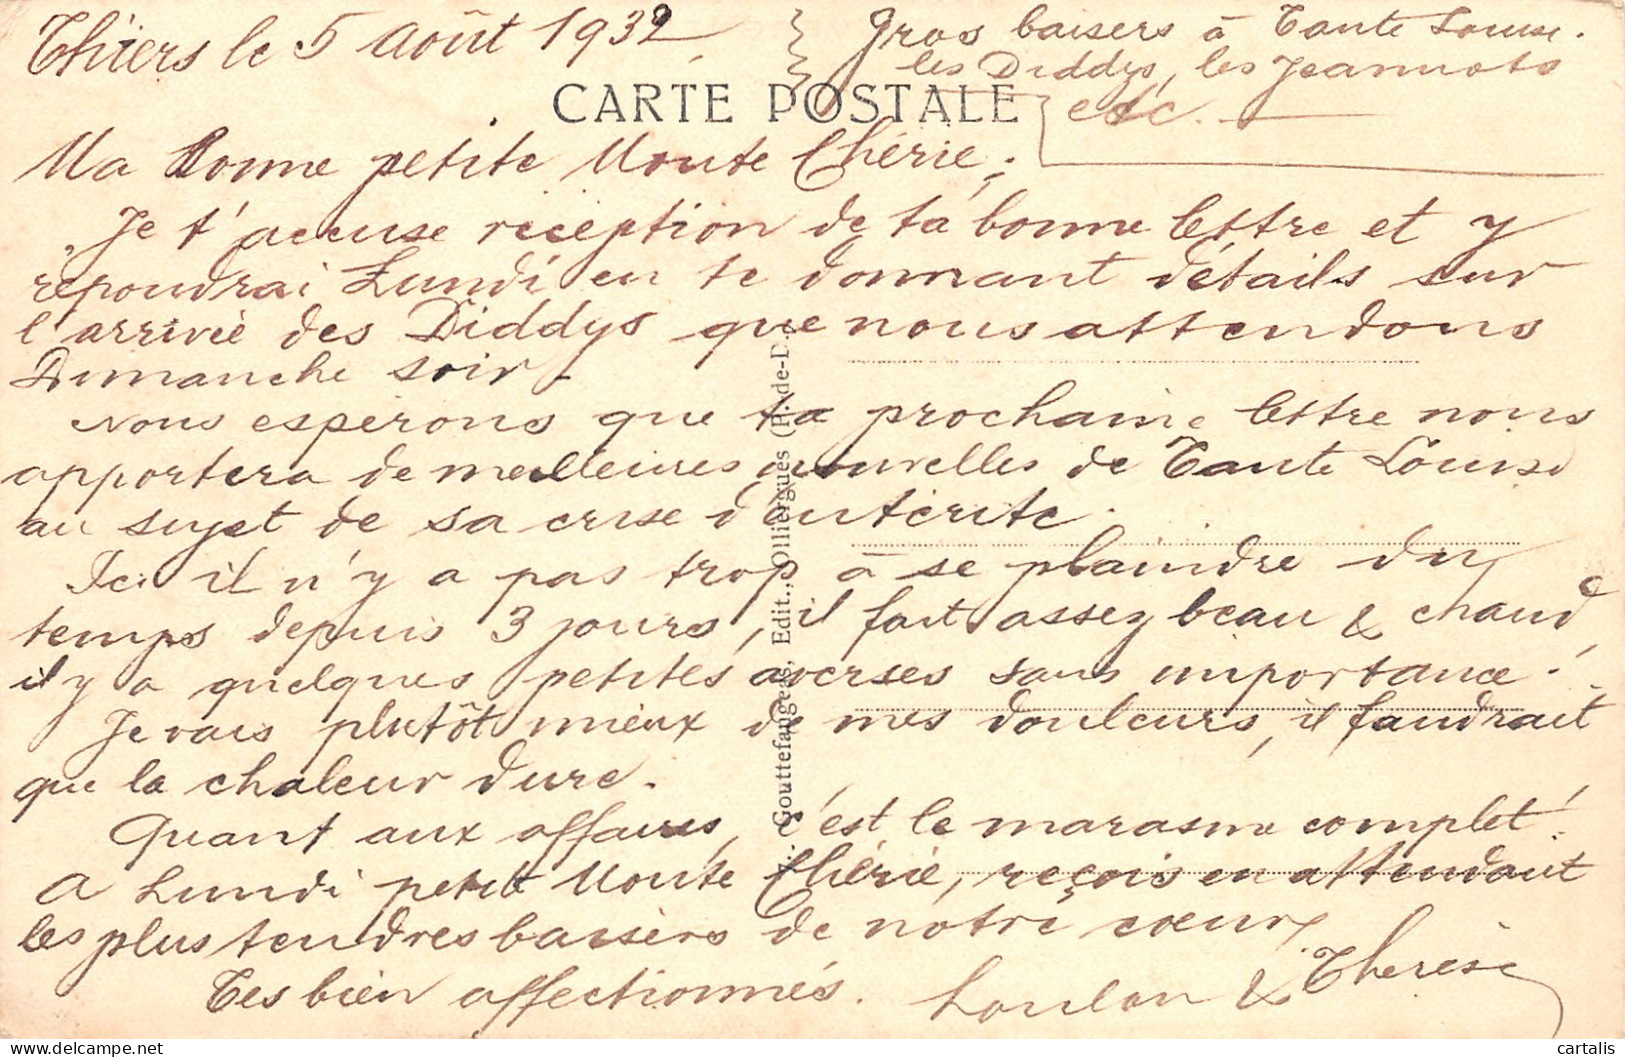 Thiers le 5 Août 1932
Gros baisers à Tante Louise.
les Diddys, les Jeannots
etc.
CARTE POSTALE
Ma Bonne petite Moute Chérie,
Je t'accuse réception de ta bonne lettre et y
répondrai Lundi en te donnant détails sur
l'arrivée des Diddys que nous attendons
Dimanche soir -
Nous espérons que ta prochaine lettre nous
apportera de meilleures nouvelles de Tante Louise
au sujet de sa crise d'entérite.
Ici il n'y a pas trop à se plaindre du
temps depuis 3 jours, il fait assez beau & chaud,
il y a quelques petites averses sans importance.
Je vais plutôt mieux de mes douleurs, il faudrait
que la chaleur dure.
Quant aux affaires, c'est le marasme complet!
A Lundi petite Moute Chérie, reçois en attendant
les plus tendres baisers de notre cœur
Tes bien affectionnés. Loulou & Therese
Gouttefangeas, Edit., Olliergues (P.-de-D.)
cartalis